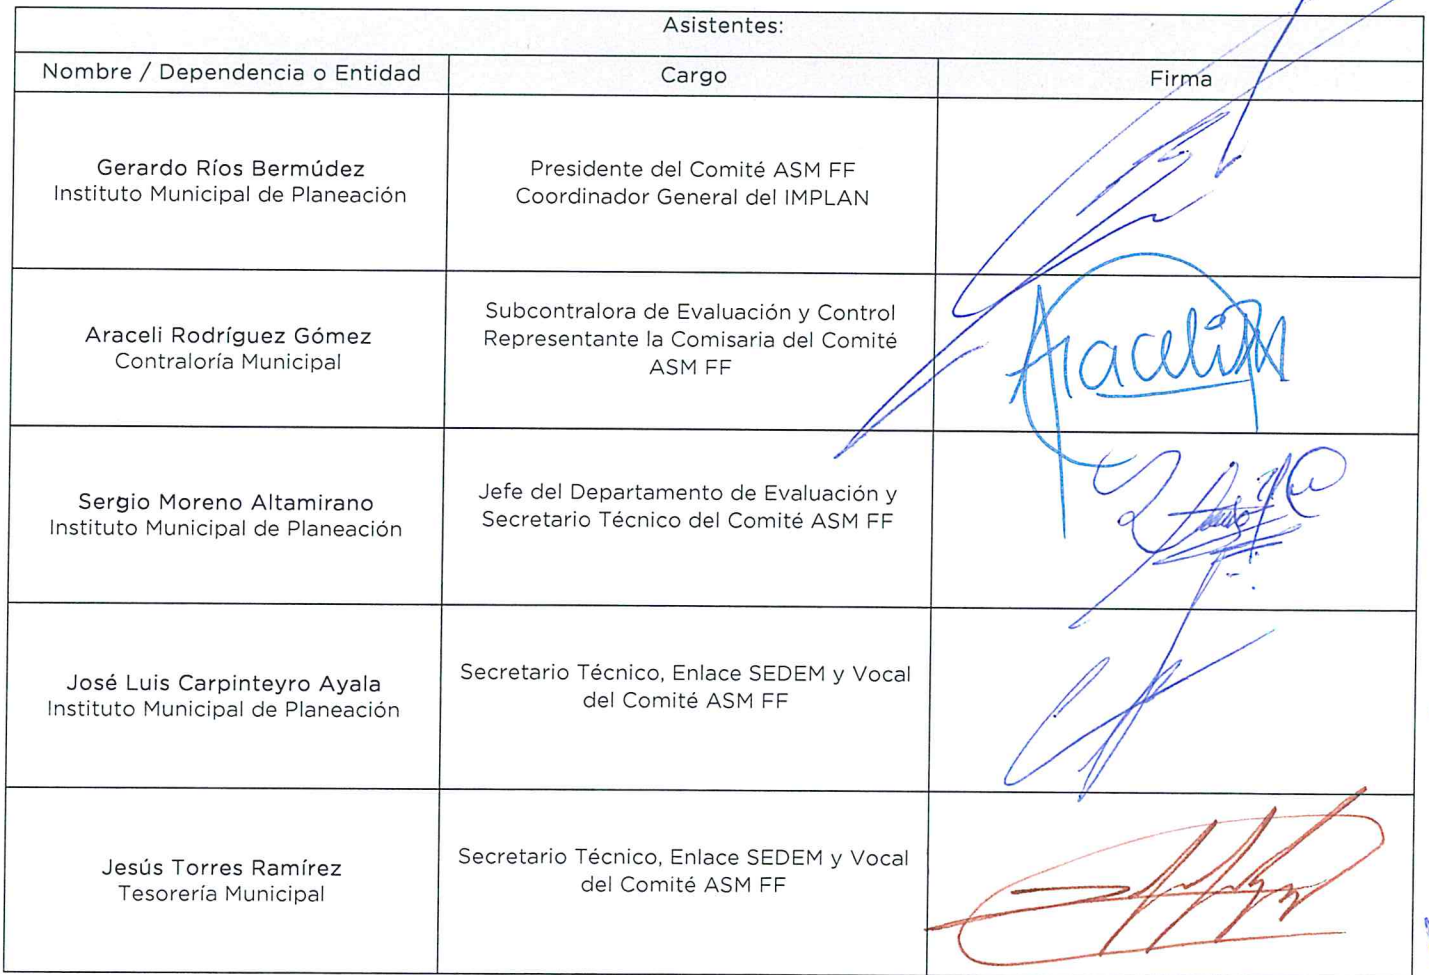 Asistentes:
Nombre / Dependencia o Entidad
Cargo
Firma
Gerardo Ríos Bermúdez
Instituto Municipal de Planeación
Presidente del Comité ASM FF
Coordinador General del IMPLAN
Araceli Rodríguez Gómez
Contraloría Municipal
Subcontralora de Evaluación y Control
Representante la Comisaria del Comité
ASM FF
Araceli
Sergio Moreno Altamirano
Instituto Municipal de Planeación
Jefe del Departamento de Evaluación y
Secretario Técnico del Comité ASM FF
José Luis Carpinteyro Ayala
Instituto Municipal de Planeación
Secretario Técnico, Enlace SEDEM y Vocal
del Comité ASM FF
Jesús Torres Ramírez
Tesorería Municipal
Secretario Técnico, Enlace SEDEM y Vocal
del Comité ASM FF